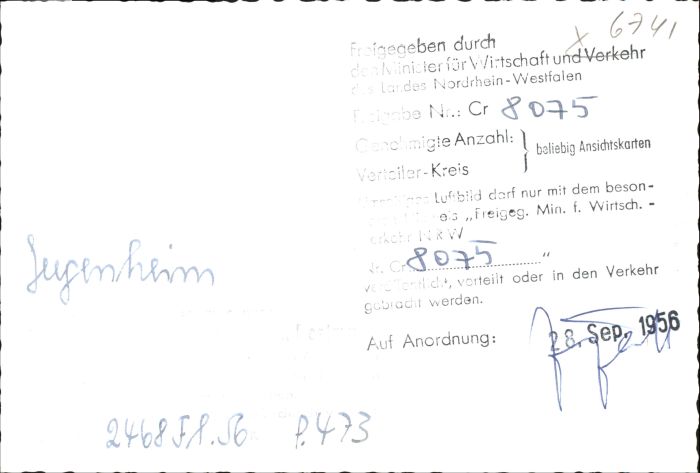 x 6741
Freigegeben durch
den Minister für Wirtschaft und Verkehr
des Landes Nordrhein-Westfalen
Freigabe Nr.: Cr 8075
Genehmigte Anzahl: } beliebig Ansichtskarten
Verteiler-Kreis
Luftbild darf nur mit dem beson-
„Freigeg. Min. f. Wirtsch. -
Verkehr NRW
Nr. Cr. 8075 “
veröffentlicht, verteilt oder in den Verkehr
gebracht werden.
Jugenheim
Auf Anordnung:
28. Sep. 1956
2468 Fl. 56 P. 473